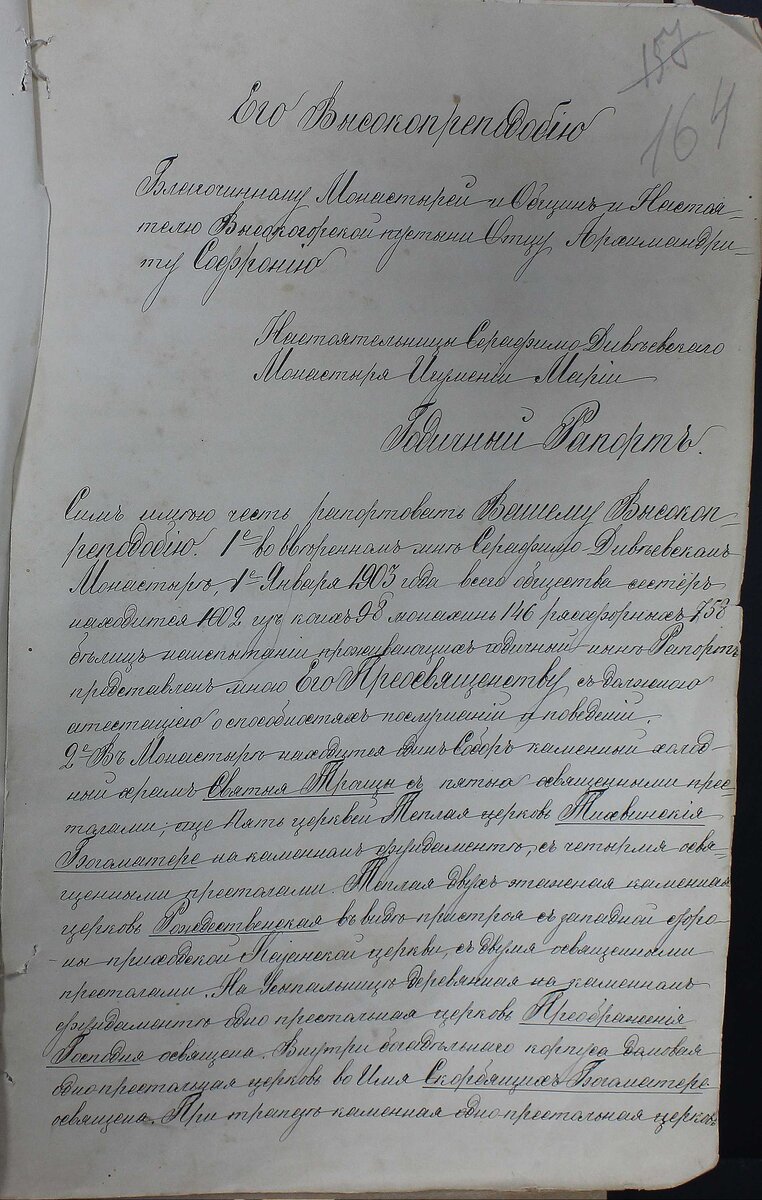 157
164
Его Высокопреподобію
Благочинному Монастырей и Общинъ и Настоя-
телю Высокогорской пустыни Отцу Архимандри-
ту Софронію
Настоятельницы Серафимо-Дивѣевскаго
Монастыря Игуменіи Маріи
Годичный Рапортъ.
Симъ имѣю честь рапортовать Вашему Высокоп-
реподобію. 1е во ввѣренномъ мнѣ Серафимо-Дивѣевскомъ
Монастырѣ, 1е Января 1903 года всего общества сестёръ
находится 1002 изъ коихъ 98 монахинь 146 рясофорныхъ 758
бѣлицъ на испытаніи проживающихъ годичный Рапортъ
представленъ мною Его Преосвященству съ должною
атестаціею о способностяхъ послушаніи и поведеніи.
2е Въ Монастырѣ находится одинъ Соборъ каменный холод-
ный храмъ Святыя Троицы съ пятью освященными прес-
толами, еще пять церквей Теплая церковь Тихвинскія
Богоматере на каменномъ фундаментѣ, съ четырмя освя-
щенными престолами. Теплая двухъ этажная каменная
церковь Рождественская въ видѣ пристроя съ западной сторо-
ны приходской Казанской церкви, съ двумя освященными
престолами. На Усыпальницѣ деревянная на каменномъ
фундаментѣ одно престольная церковь Преображенія
Господня освящена. Внутри богадѣльнаго корпуса домовая
однопрестольная церковь во Имя Скорбящихъ Богоматере
освящена. При трапезѣ каменная однопрестольная церковь